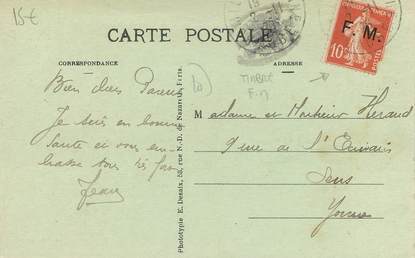 15€
CARTE POSTALE
CORRESPONDANCE
ADRESSE
F. M.
10
TIMBRE
F.M
Bien chers Parents
Je suis en bonne
santé et vous em-
brasse tous très fort
Jean
Madame et Monsieur Heraud
9 rue de l'Écrivain
Sens
Yonne
Phototypie E. Desaix, 52, rue N.-D. de Nazareth, Paris.